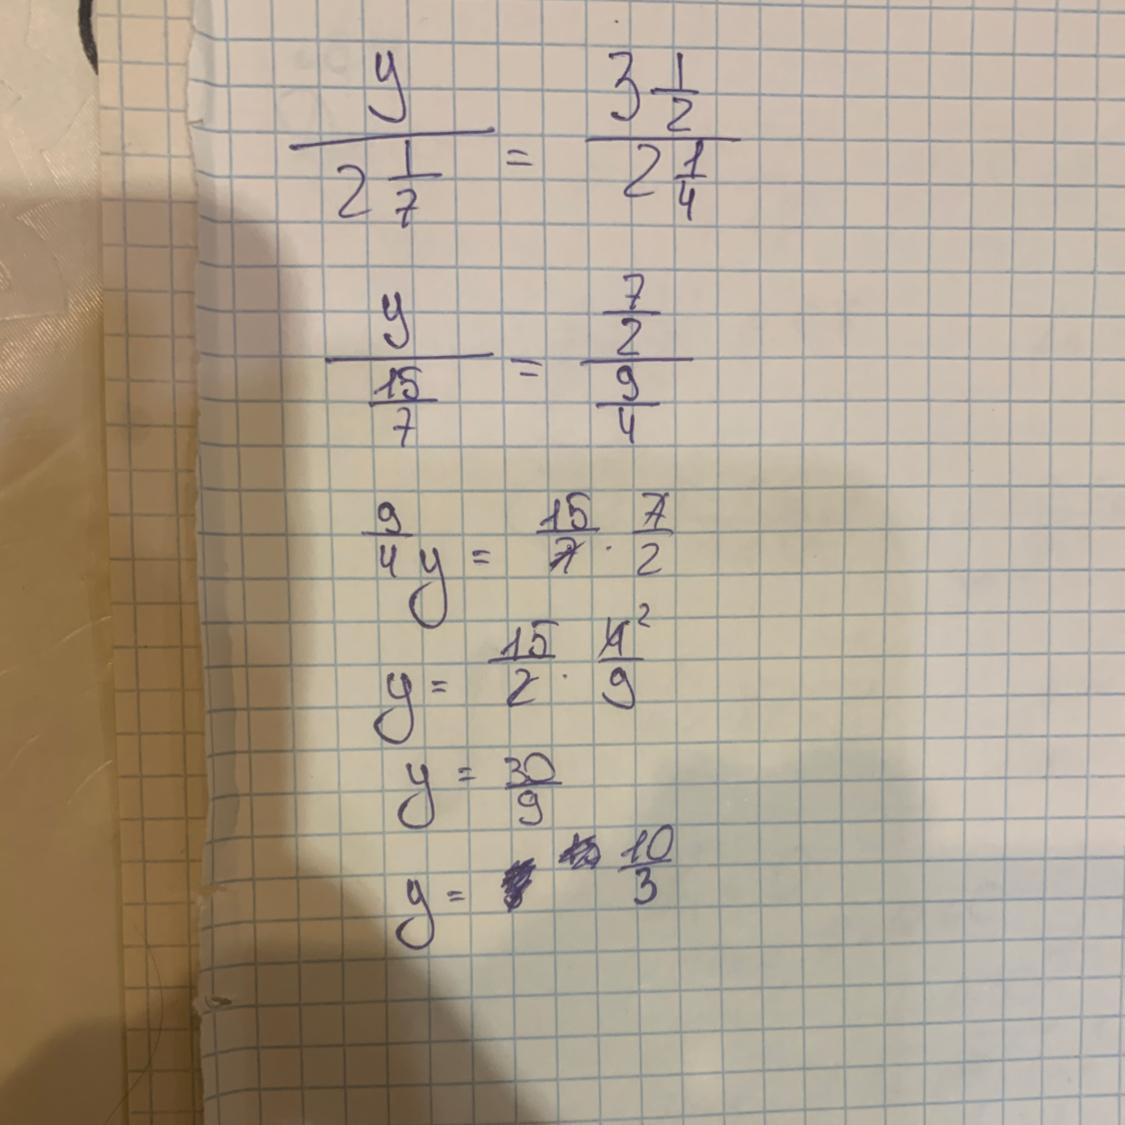 y / 2 1/7 = 3 1/2 / 2 1/4
y / 15/7 = 7/2 / 9/4
9/4 y = 15/7 · 7/2
y = 15/2 · 4²/9
y = 30/9
y = 10/3